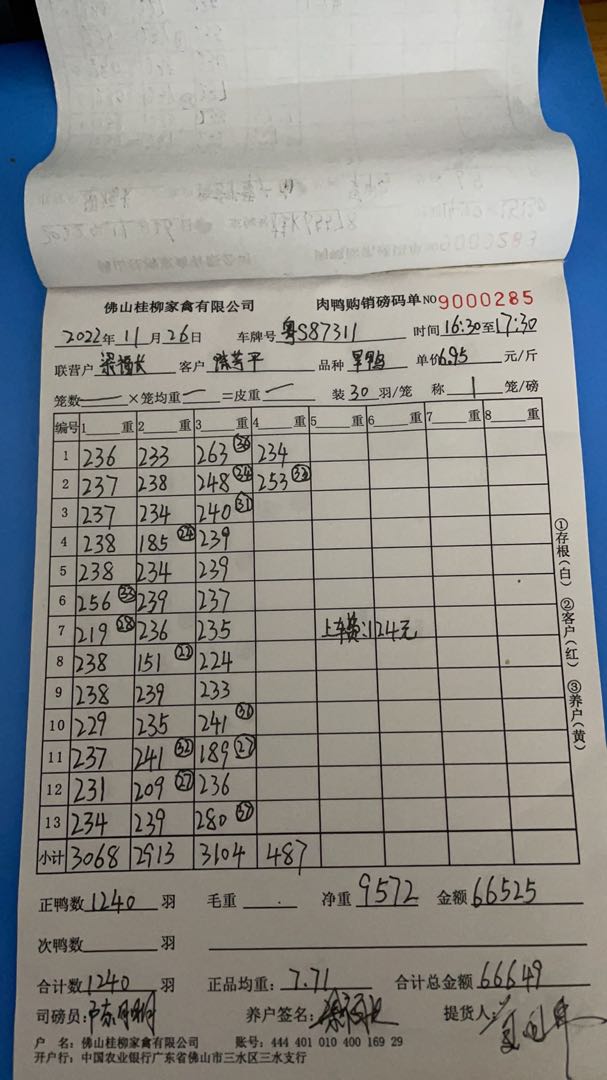 佛山桂柳家禽有限公司 肉鸭购销磅码单 NO 9000285
2022年 11月 26日 车牌号 粤S87311 时间 16:30至17:30
联营户 客户 品种 单价6.95 元/斤
笼数 — ×笼均重 — =皮重 — 装 30 羽/笼 称 1 笼/磅
编号 1 重 2 重 3 重 4 重 5 重 6 重 7 重 8 重
1 236 233 263 36 234
2 237 238 248 34 253 33
3 237 234 240 31
4 238 185 24 239
5 238 234 239
6 256 33 239 237
7 219 28 236 235 上车费:124元
8 238 151 224
9 238 239 233
10 229 235 241 31
11 237 241 32 189 27
12 231 209 27 236
13 234 239 280 37
小计 3068 2913 3104 487
①存根(白) ②客户(红) ③养户(黄)
正鸭数 1240 羽 毛重 净重 9572 金额 66525
次鸭数 羽
合计数 1240 羽 正品均重: 7.71 合计总金额 66649
司磅员: 养户签名: 提货人:
户 名: 佛山桂柳家禽有限公司 账号: 444 401 010 400 169 29
开户行: 中国农业银行广东省佛山市三水区三水支行